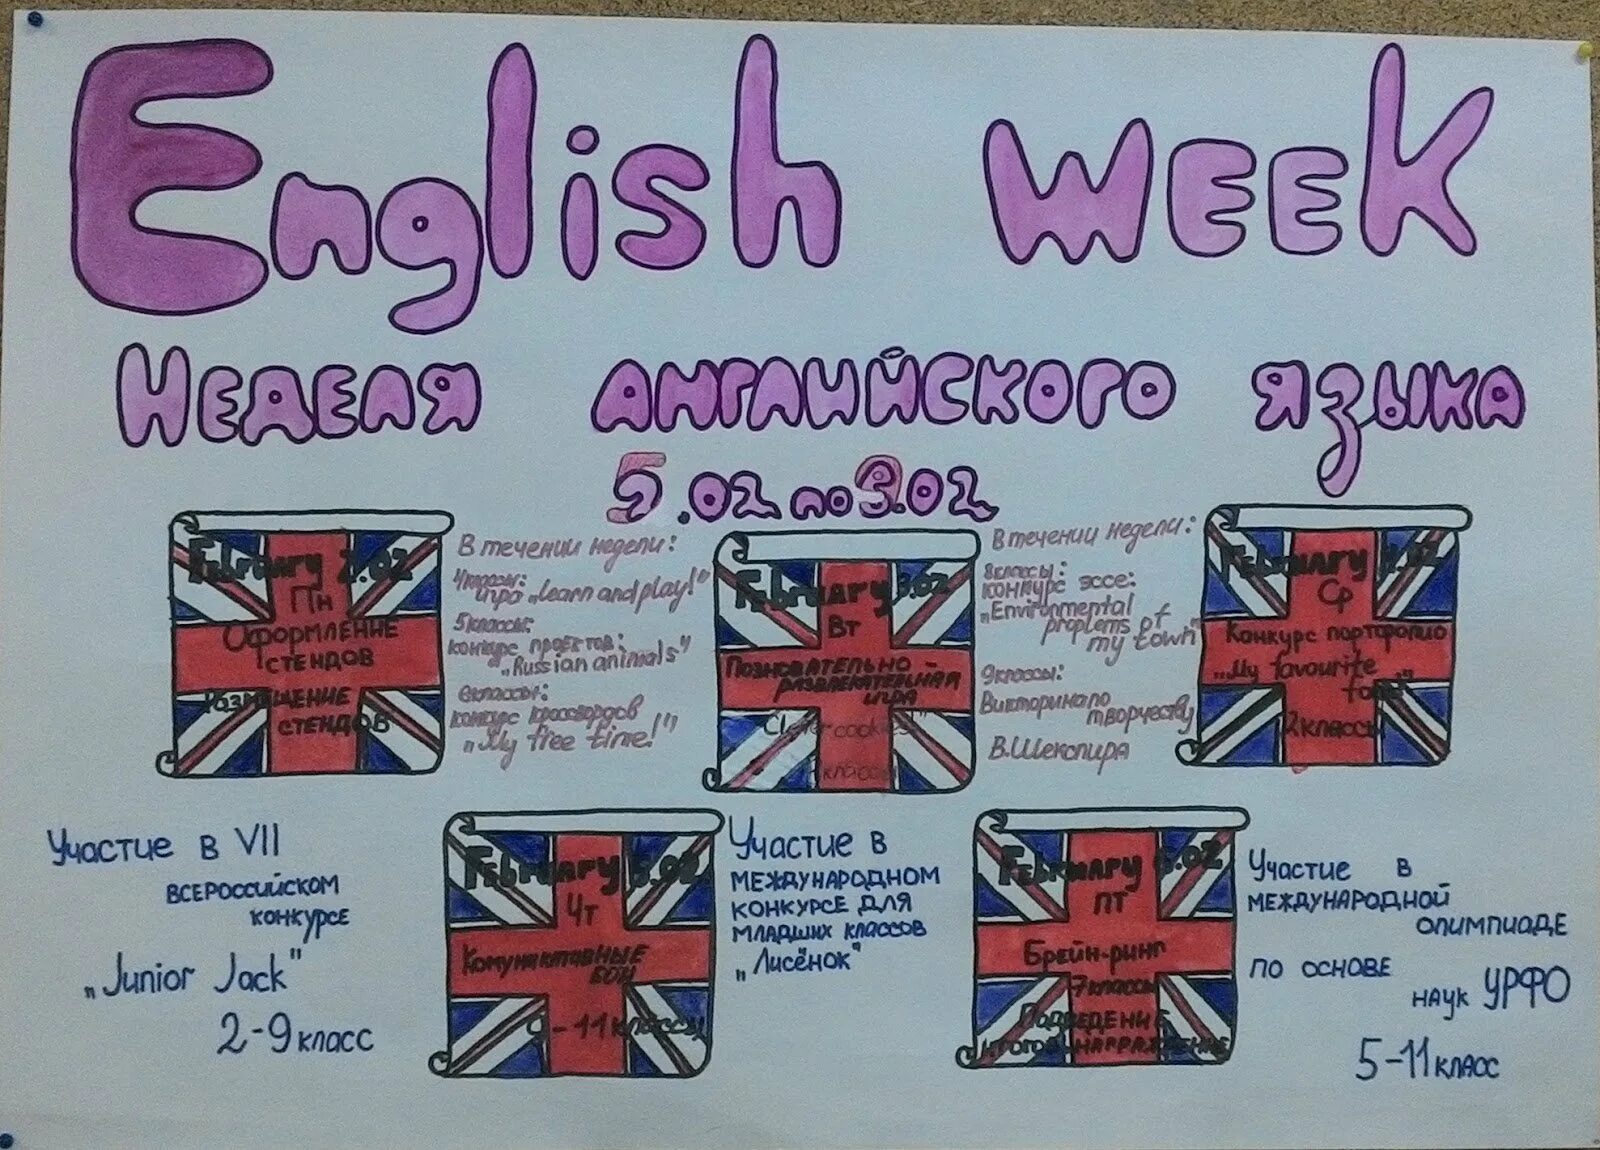 English week
Неделя английского языка
5.02 по 9.02
February 2.02
Пн
Оформление
стендов
Размещение
стендов
В течении недели:
4классы:
игра „learn and play!"
5классы:
конкурс проектов:
„Russian animals"
6классы:
конкурс кроссвордов
„My free time!"
February 3.02
Вт
Позновательно-
развлекательная
игра
Clever cookies"
классы
В течении недели:
8классы:
конкурс эссе:
„Environmental
proplems of
my town"
9классы:
Викторина по
творчеству
В.Шекспира
February 4.02
Ср
Конкурс портфолио
„My favourite
2классы
Участие в VII
всероссийском
конкурсе
„Junior Jack"
2-9класс
February 5.02
Чт
Комуникативные
бои
9-11классы
Участие в
международном
конкурсе для
младших классов
„Лисёнок"
February 6.02
ПТ
Брейн-ринг
7классы
Подведение
итогов награждение
Участие в
международной
олимпиаде
по основе
наук УРФО
5-11класс